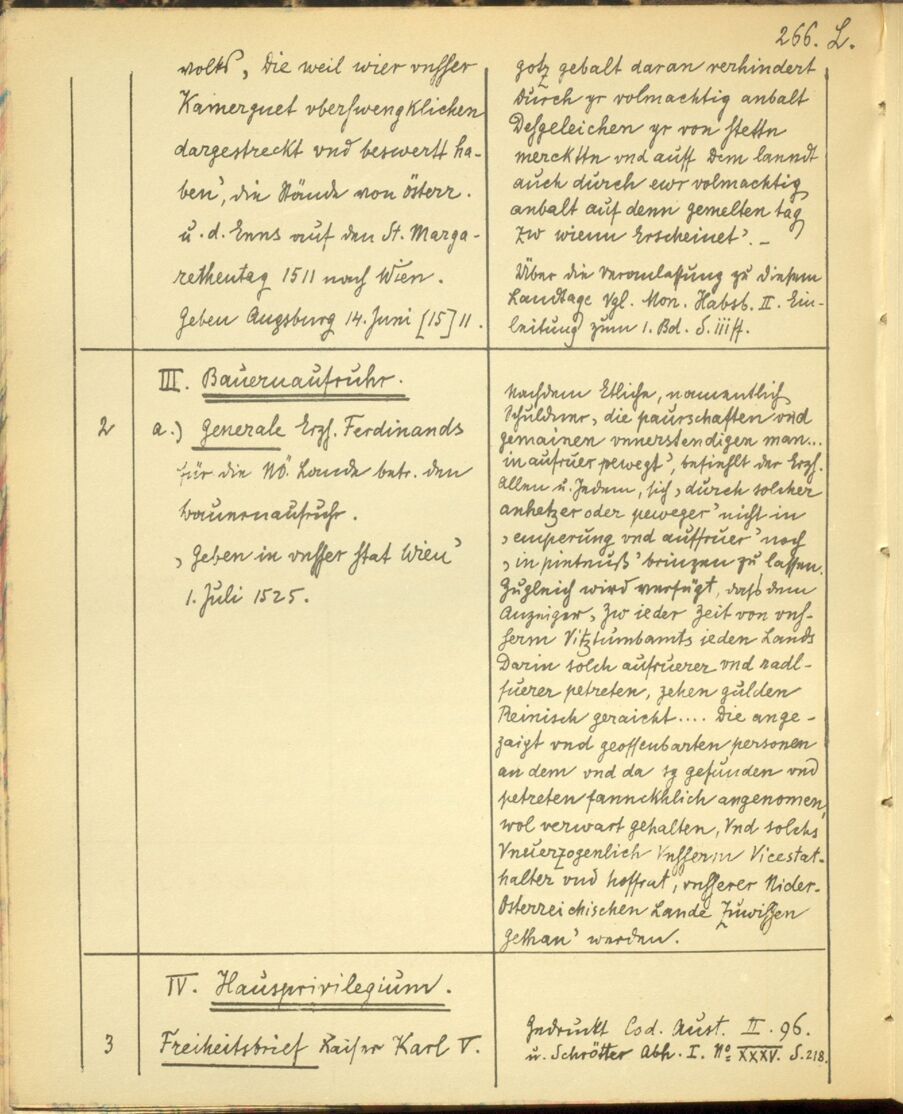 266. L.
volks, die weil wier vnsser
Kamerguet vberswengklichen
dargestreckt vnd beswertt ha-
ben', die Stände von österr.
u. d. Enns auf den St. Marga-
rethentag 1511 nach Wien.
Geben Augsburg 14. Juni [15]11.
gotz gebalt daran verhindert
Durch yr volmachtig anbalt
Desgeleichen yr von stettn
mercktn vnd auff dem lanndt
auch durch ewr volmachtig
anbalt auf denn gemelten tag
zw wienn Erscheinet'. –
Über die Veranlassung zu diesem
Landtage vgl. Mon. Habsb. II. Ein-
leitung zum 1. Bd. S. iii ff.
III. Bauernaufruhr.
2 a.) Generale Erzh. Ferdinands
für die NÖ. Lande betr. den
Bauernaufruhr.
, Geben in vnsser stat Wien'
1. Juli 1525.
Nachdem Etliche, namentlich
Schuldner, ‚die paurschaften vnd
gemainen vnnerstendigen man...
in aufruer pewegt', befiehlt der Erzh.
Allen u. Jedem, sich ‚durch solcher
anhetzer oder peweger' nicht in
‚emperung vnd auffruer' noch
‚in pintnuß' bringen zu lassen.
Zugleich wird verfügt, dass dem
Anzeiger ‚zw ieder Zeit von vns-
serm Vitztumbamts ieden Lands
Darin solch aufruerer vnd radl-
fuerer petreten, zehen gulden
Reinisch geraicht.... Die ange-
zaigt vnd geoffenbarten personen
an dem vnd da sy gefunden vnd
petreten fannckhlich angenomen,
wol verwart gehalten, Vnd solchs
Vneuerzogenlich Vnsserm Vicestat-
halter vnd hoffrat, vnsserer Nider-
Österreichischen Lande Zuwissen
gethan' werden.
IV. Hausprivilegium.
3 Freiheitsbrief Kaiser Karl V.
Gedruckt Cod. Aust. II. 96.
u. Schrötter Abh. I. No XXXV. S. 218.